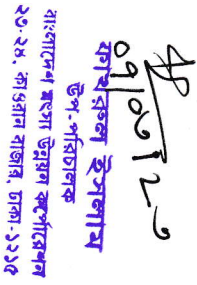 কামরুল ইসলাম
উপ-পরিচালক
বাংলাদেশ মৎস্য উন্নয়ন কর্পোরেশন
২৩-২৪, কাওরান বাজার, ঢাকা-১২১৫